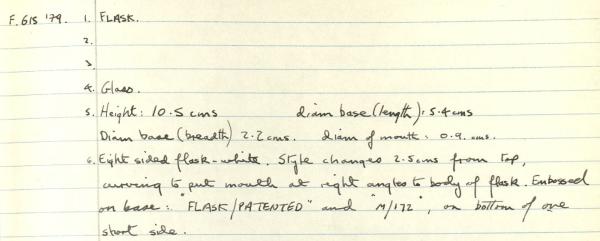 F. 615 '79. 1. FLASK.
2.
3.
4. Glass.
5. Height: 10.5 cms diam base (length): 5.4 cms
Diam base (breadth) 2.2 cms. diam of mouth: 0.9. cms.
6. Eight sided flask - white. Style changes 2.5 cms from top,
curving to put mouth at right angles to body of flask. Embossed
on base: "FLASK/PATENTED" and "M/172", on bottom of one
short side.